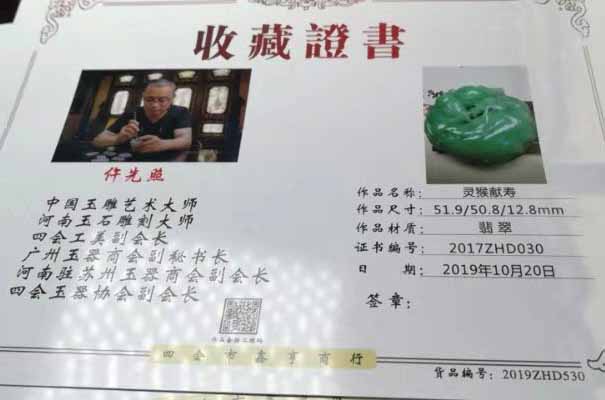 收藏證書
仵先照
中国玉雕艺术大师
河南玉石雕刻大师
四会工美副会长
广州玉器商会副秘书长
河南驻苏州玉器商会副会长
四会玉器协会副会长
作品名称: 灵猴献寿
作品尺寸: 51.9/50.8/12.8mm
作品材质: 翡翠
证书编号: 2017ZHD030
日期: 2019年10月20日
签章:
四会市鑫亨商行
货品编号: 2019ZHD530